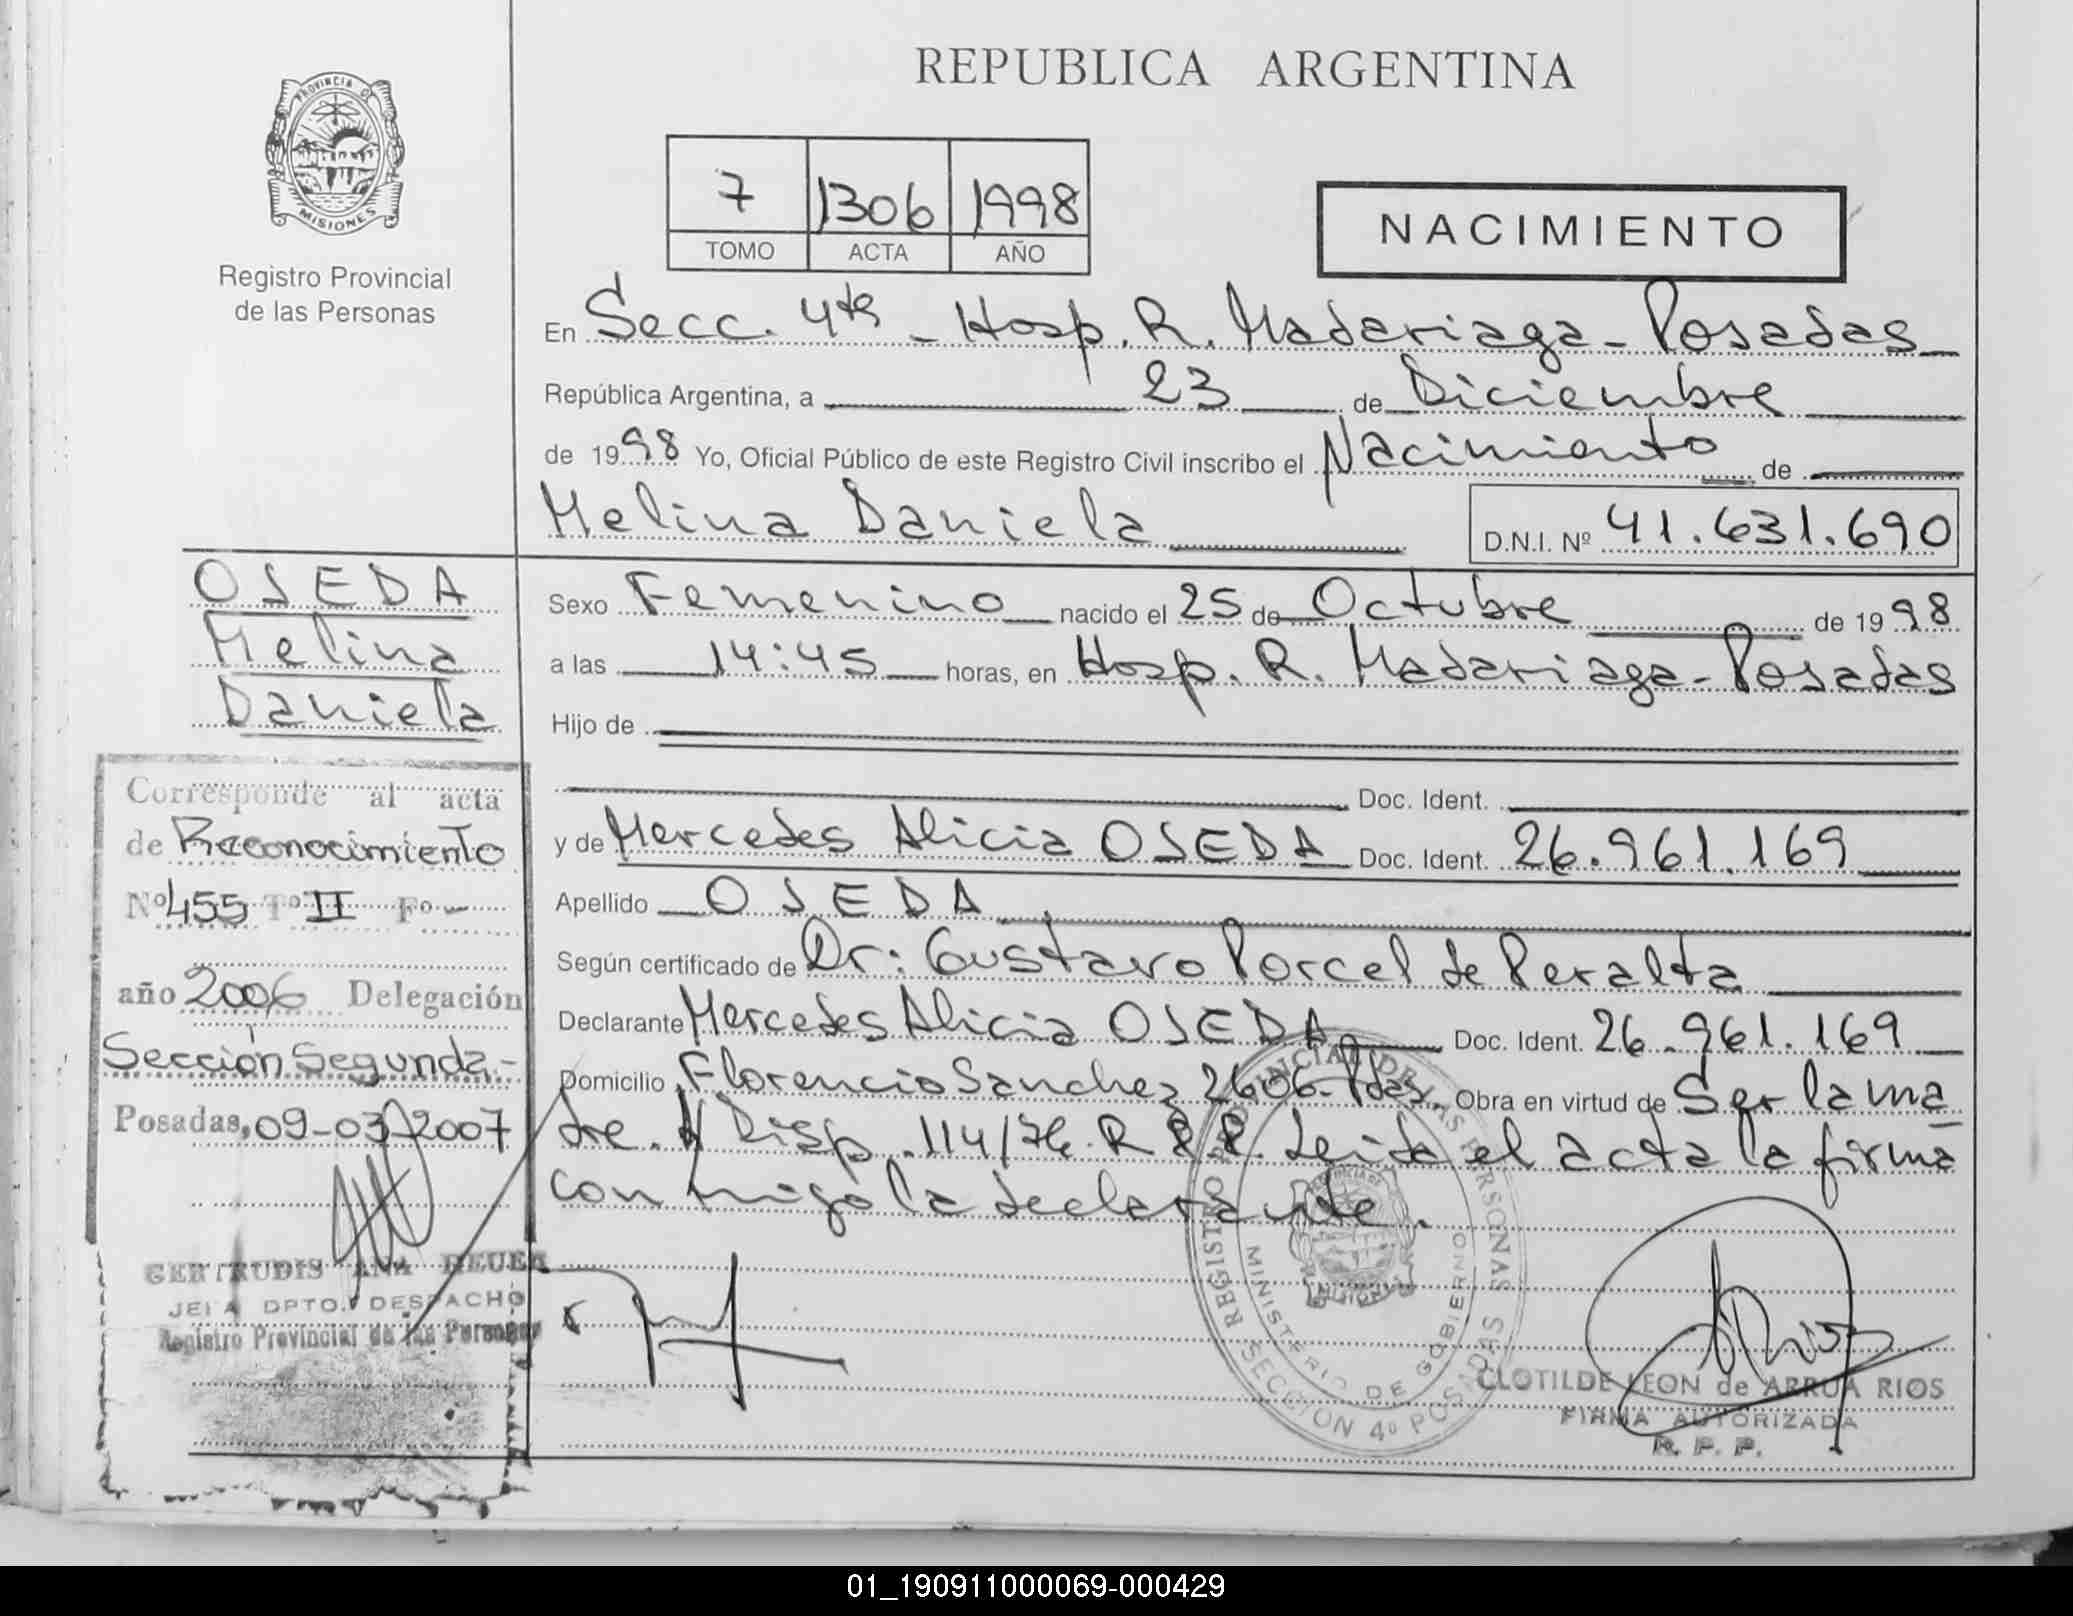 REPUBLICA ARGENTINA
PROVINCIA DE
MISIONES
Registro Provincial
de las Personas
7 1306 1998
TOMO ACTA AÑO
NACIMIENTO
En Secc. 4ta - Hosp. R. Madariaga - Posadas
República Argentina, a 23 de Diciembre
de 1998 Yo, Oficial Público de este Registro Civil inscribo el Nacimiento de
Melina Daniela D.N.I. Nº 41.631.690
OSEDA
Melina
Daniela
Sexo Femenino nacido el 25 de Octubre de 1998
a las 14:45 horas, en Hosp. R. Madariaga - Posadas
Hijo de
Doc. Ident.
y de Mercedes Alicia OSEDA Doc. Ident. 26.961.169
Apellido OSEDA
Según certificado de Dr: Gustavo Porcel de Peralta
Declarante Mercedes Alicia OSEDA Doc. Ident. 26.961.169
Domicilio Florencio Sanchez 2606 - Pdas. Obra en virtud de Ser la ma
dre. Disp. 114/76 R.P.P. Leida el acta la firma
conmigo la declarante.
Corresponde al acta
de Reconocimiento
Nº 455 Tº II Fº -
año 2006 Delegación
Sección Segunda -
Posadas, 09-03-2007
GERTRUDIS ANA HEUER
JEFA DPTO. DESPACHO
Registro Provincial de las Personas
REGISTRO PROVINCIAL DE LAS PERSONAS
MINISTERIO DE GOBIERNO
SECCION 4º POSADAS
MISIONES
CLOTILDE LEON de ARRUA RIOS
FIRMA AUTORIZADA
R. P. P.
01_190911000069-000429